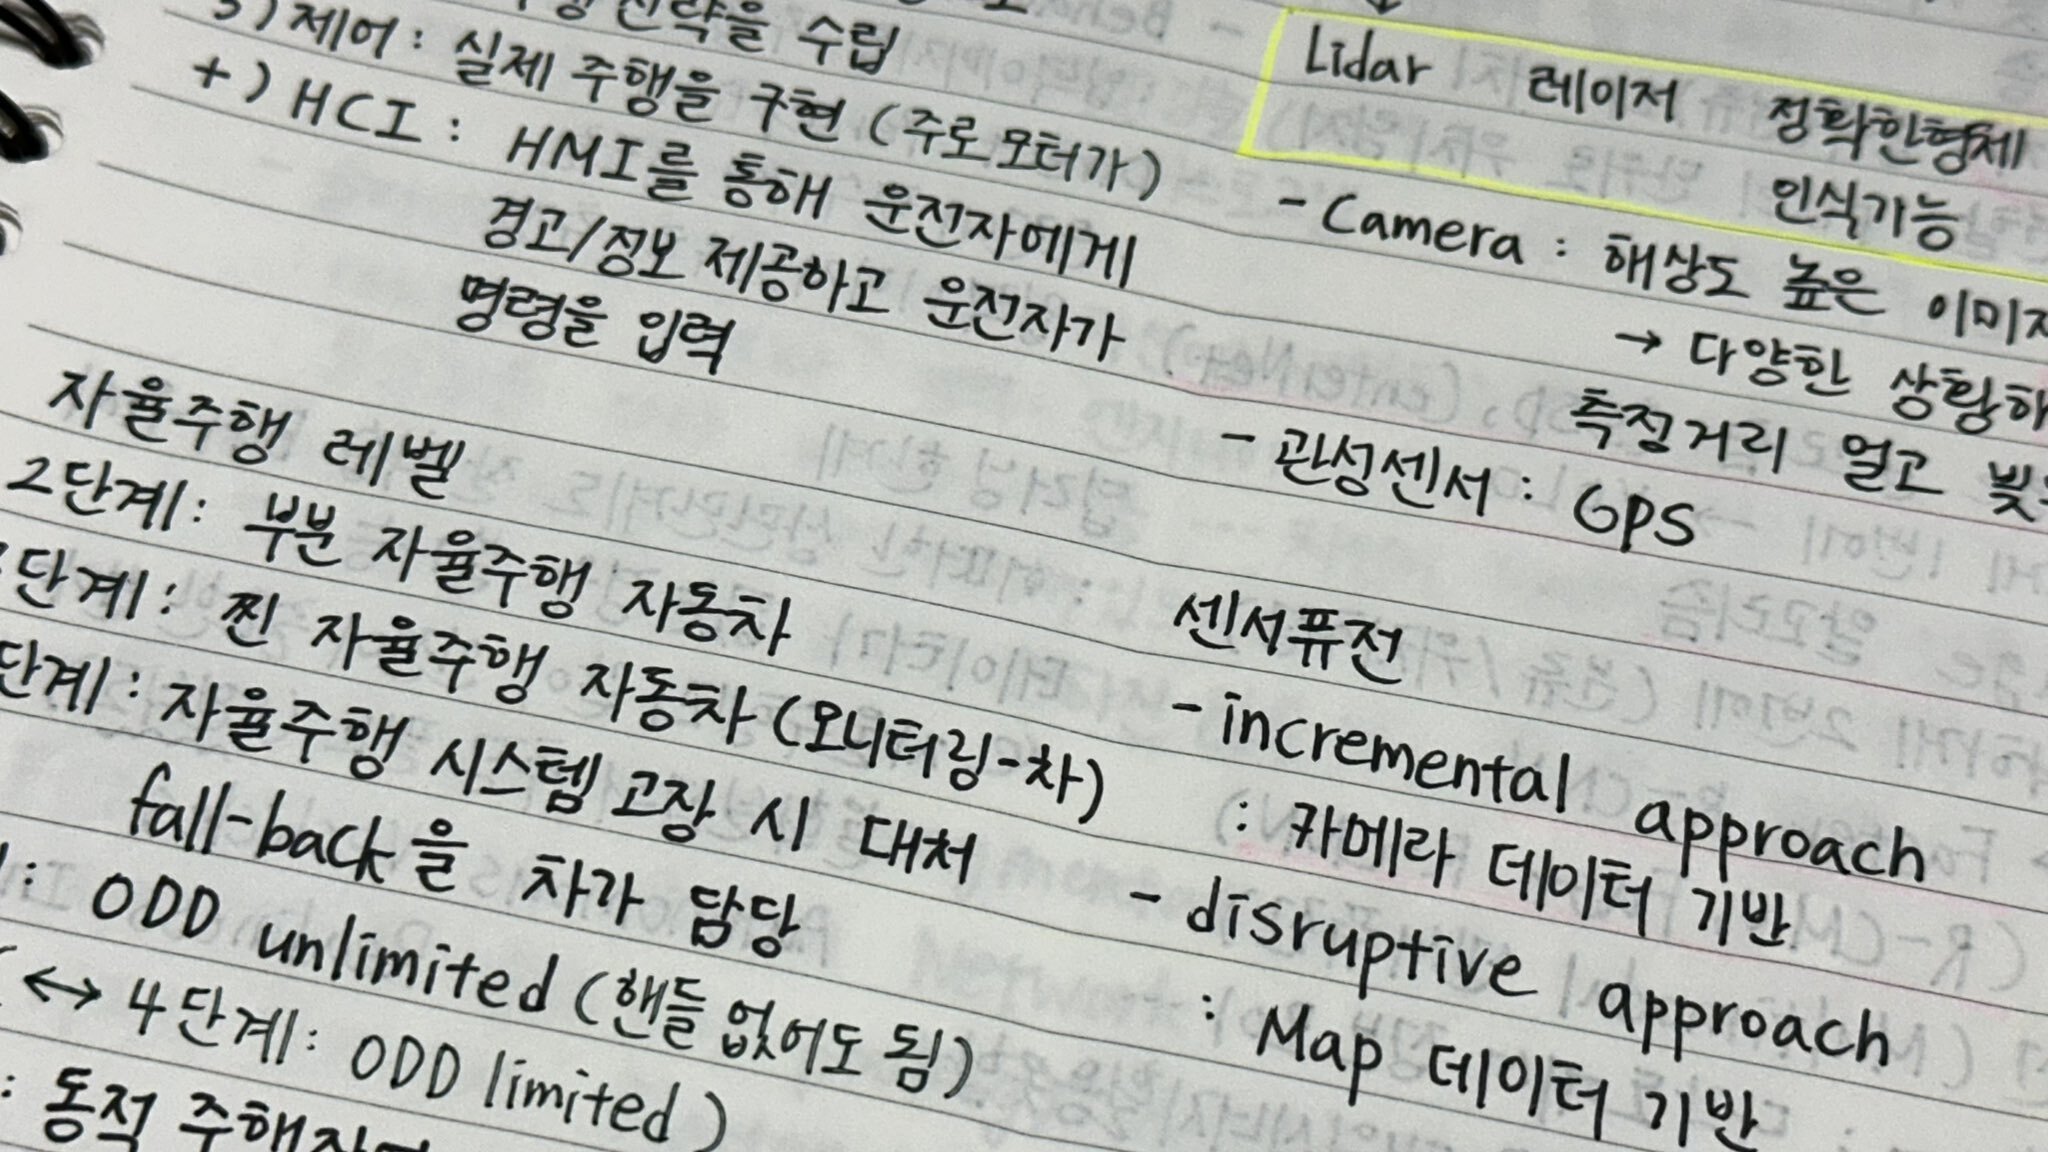 전략을 수립
3) 제어 : 실제 주행을 구현 (주로 모터가)
+) HCI : HMI를 통해 운전자에게
경고/정보 제공하고 운전자가
명령을 입력
자율주행 레벨
2단계: 부분 자율주행 자동차
단계: 찐 자율주행 자동차 (모니터링-차)
단계: 자율주행 시스템 고장 시 대처
fall-back을 차가 담당
: ODD unlimited (핸들 없어도 됨)
↔ 4단계: ODD limited)
: 동적
Lidar 레이저 정확한형체
인식가능
- Camera : 해상도 높은
→ 다양한
측정거리 얼고
- 관성센서 : GPS
센서퓨전
- incremental approach
: 카메라 데이터 기반
- disruptive approach
: Map 데이터 기반